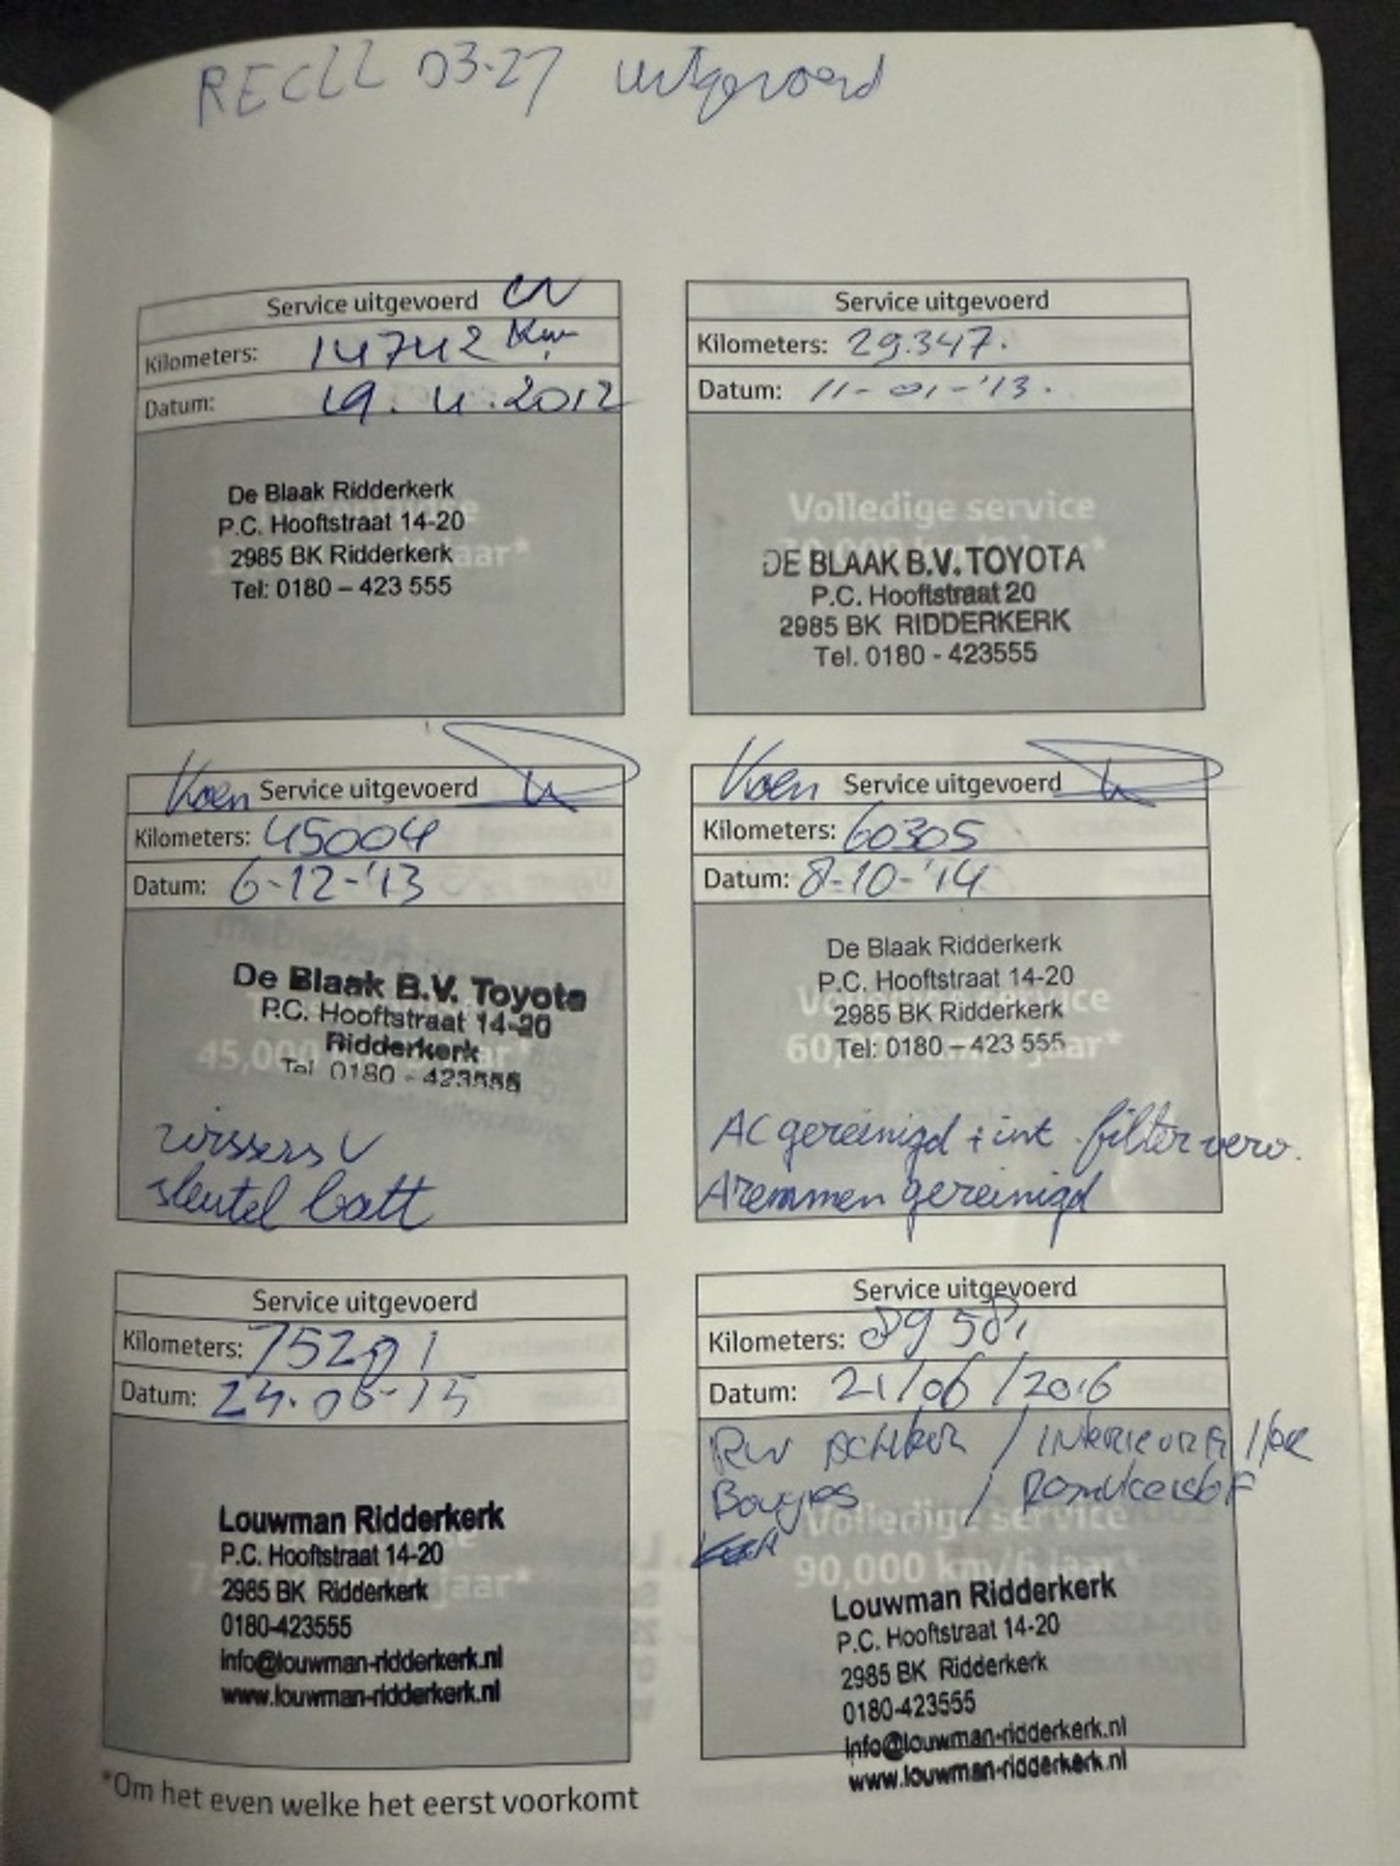 RECLL 03-27 uitgevoerd
Service uitgevoerd
Kilometers: 14742 Km
Datum: 19.4.2012
De Blaak Ridderkerk
P.C. Hooftstraat 14-20
2985 BK Ridderkerk
Tel: 0180 – 423 555
Service uitgevoerd
Kilometers: 29.347.
Datum: 11-01-'13.
Volledige service
DE BLAAK B.V. TOYOTA
P.C. Hooftstraat 20
2985 BK RIDDERKERK
Tel. 0180 - 423555
Koen Service uitgevoerd
Kilometers: 45004
Datum: 6-12-'13
De Blaak B.V. Toyota
P.C. Hooftstraat 14-20
Ridderkerk
45,000 jaar*
Tel 0180 - 423555
wissers V
sleutel batt
Koen Service uitgevoerd
Kilometers: 60305
Datum: 8-10-'14
De Blaak Ridderkerk
P.C. Hooftstraat 14-20
Volledige service
2985 BK Ridderkerk
60,000 km/4 jaar*
Tel: 0180 – 423 555
AC gereinigd + int. filter verv.
Aremmen gereinigd
Service uitgevoerd
Kilometers: 75291
Datum: 24-06-15
Louwman Ridderkerk
P.C. Hooftstraat 14-20
2985 BK Ridderkerk
0180-423555
info@louwman-ridderkerk.nl
www.louwman-ridderkerk.nl
Service uitgevoerd
Kilometers: 89581
Datum: 21/06/2016
RW Achter / Interieurfilter
Bougies /
Volledige service
90,000 km/6 jaar*
Louwman Ridderkerk
P.C. Hooftstraat 14-20
2985 BK Ridderkerk
0180-423555
info@louwman-ridderkerk.nl
www.louwman-ridderkerk.nl
*Om het even welke het eerst voorkomt